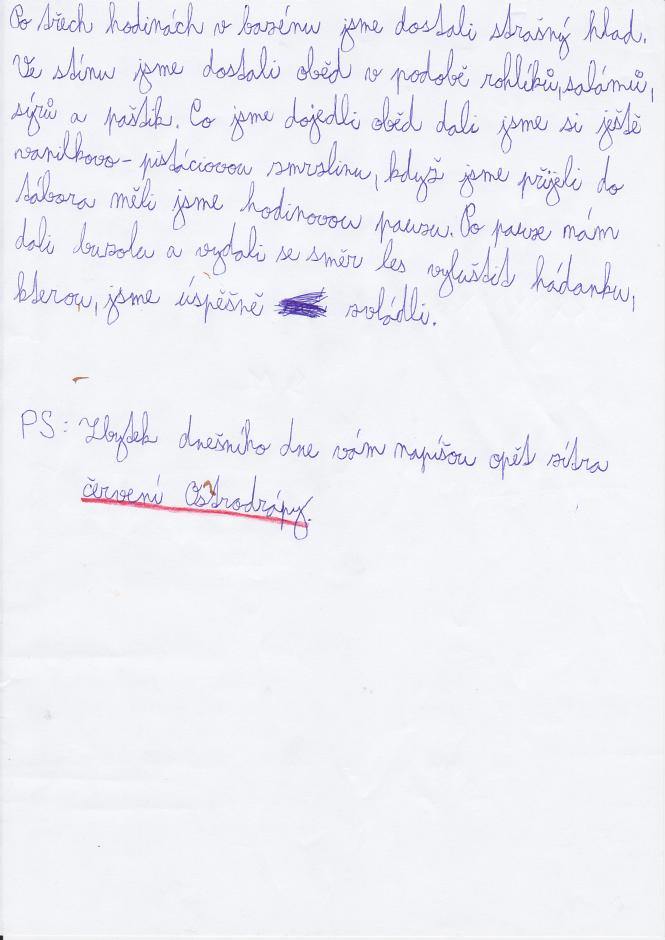 Po třech hodinách v bazénu jsme dostali strašný hlad.
Ve stínu jsme dostali oběd v podobě rohlíků, salámů,
sýrů a paštik. Co jsme dojedli oběd dali jsme si ještě
vanilkovo-pistáciovou zmrzlinu, když jsme přijeli do
tábora měli jsme hodinovou pauzu. Po pauze nám
dali buzolu a vydali se směr les vyluštit hádanku,
kterou, jsme úspěšně zvládli.
PS: Zbytek dnešního dne vám napíšou opět zítra
červení Ostrodrápy.